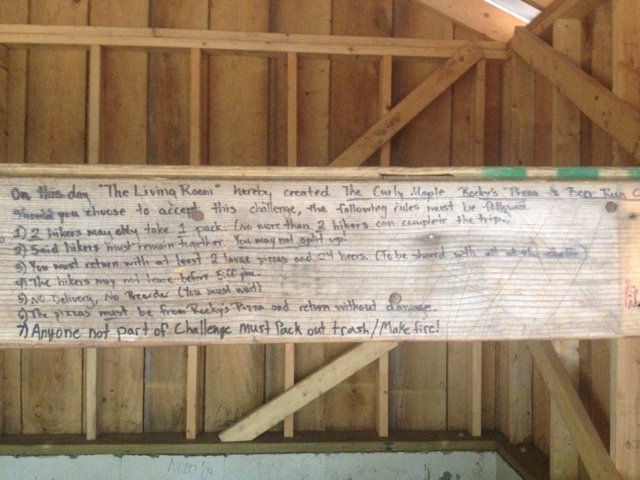 On this day "The Living Room" hereby created The Curly Maple Rocky's Pizza & Beer Run
Should you choose to accept this challenge, the following rules must be followed
1) 2 hikers may only take 1 pack. (No more than 2 hikers can complete the trip.)
2) Said hikers must remain together. You may not split up.
3) You must return with at least 2 large pizzas and 24 beers. (To be shared with all at the shelter)
4) The hikers may not leave before 5:00 pm.
5) No Delivery, No Preorder (You must wait)
6) The pizzas must be from Rocky's Pizza and return without damage.
7) Anyone not part of Challenge must Pack out trash/Make fire!